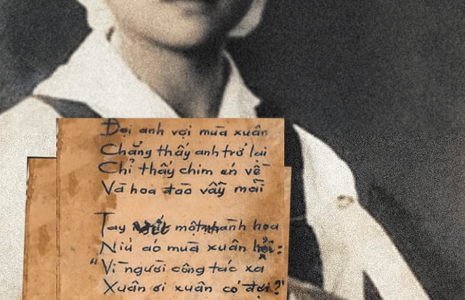 Đợi anh vợi mùa xuân
Chẳng thấy anh trở lại
Chỉ thấy chim én về
Và hoa đào vẫy mãi
Tay một nhành hoa
Níu áo mùa xuân hỏi:
"Vì người công tác xa
Xuân ơi xuân có đợi?"